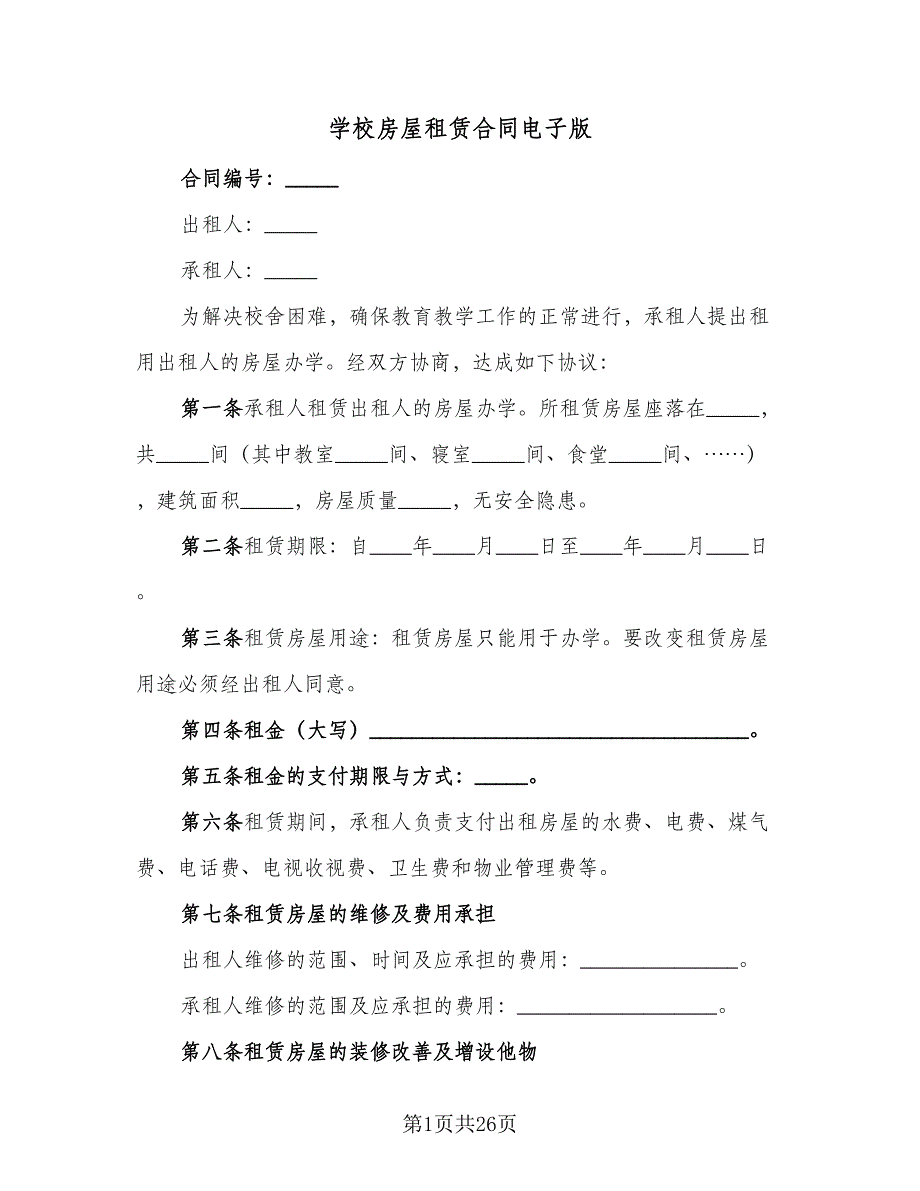 学校房屋租赁合同电子版
合同编号：_____
出租人：_____
承租人：_____
为解决校舍困难，确保教育教学工作的正常进行，承租人提出租
用出租人的房屋办学。经双方协商，达成如下协议：
第一条承租人租赁出租人的房屋办学。所租赁房屋座落在_____，
共_____间（其中教室_____间、寝室_____间、食堂_____间、……）
，建筑面积_____，房屋质量_____，无安全隐患。
第二条租赁期限：自____年____月____日至____年____月____日
。
第三条租赁房屋用途：租赁房屋只能用于办学。要改变租赁房屋
用途必须经出租人同意。
第四条租金（大写）____________________________________。
第五条租金的支付期限与方式：_____。
第六条租赁期间，承租人负责支付出租房屋的水费、电费、煤气
费、电话费、电视收视费、卫生费和物业管理费等。
第七条租赁房屋的维修及费用承担
出租人维修的范围、时间及应承担的费用：_______________。
承租人维修的范围及应承担的费用：___________________。
第八条租赁房屋的装修改善及增设他物
第1页共26页